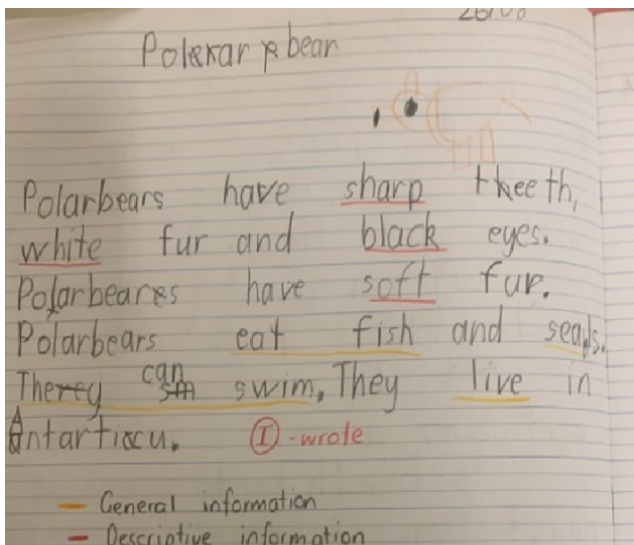 Polar bear
Polarbears have sharp teeth,
white fur and black eyes.
Polarbeares have soft fur.
Polarbears eat fish and seals.
They can swim. They live in
Antarticu.
I - wrote
General information
Descriptive information